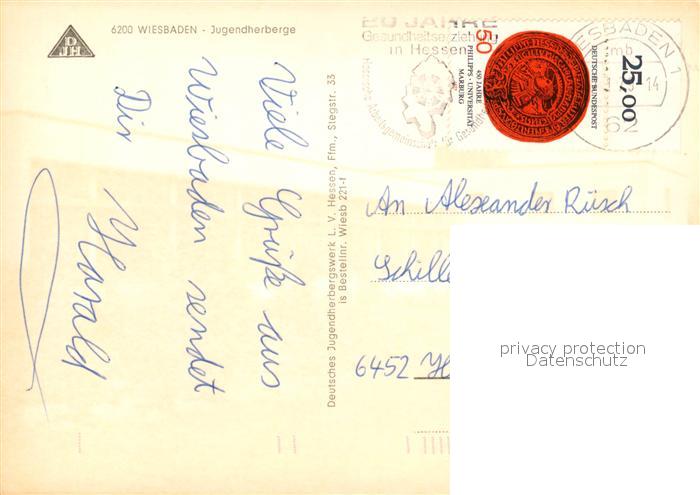 DJH
6200 WIESBADEN - Jugendherberge
Viele Grüße aus
Wiesbaden sendet
Dir
Harald
Deutsches Jugendherbergswerk L. V. Hessen, Ffm., Stegstr. 33
is Bestellnr. Wiesb 221-f
20 JAHRE
Gesundheitserziehung
in Hessen
50
450 JAHRE
PHILIPPS-UNIVERSITÄT
MARBURG
DEUTSCHE BUNDESPOST
25,00
WIESBADEN 1
mb
14
62
An Alexander Rüsch
Schille
6452 H
privacy protection
Datenschutz